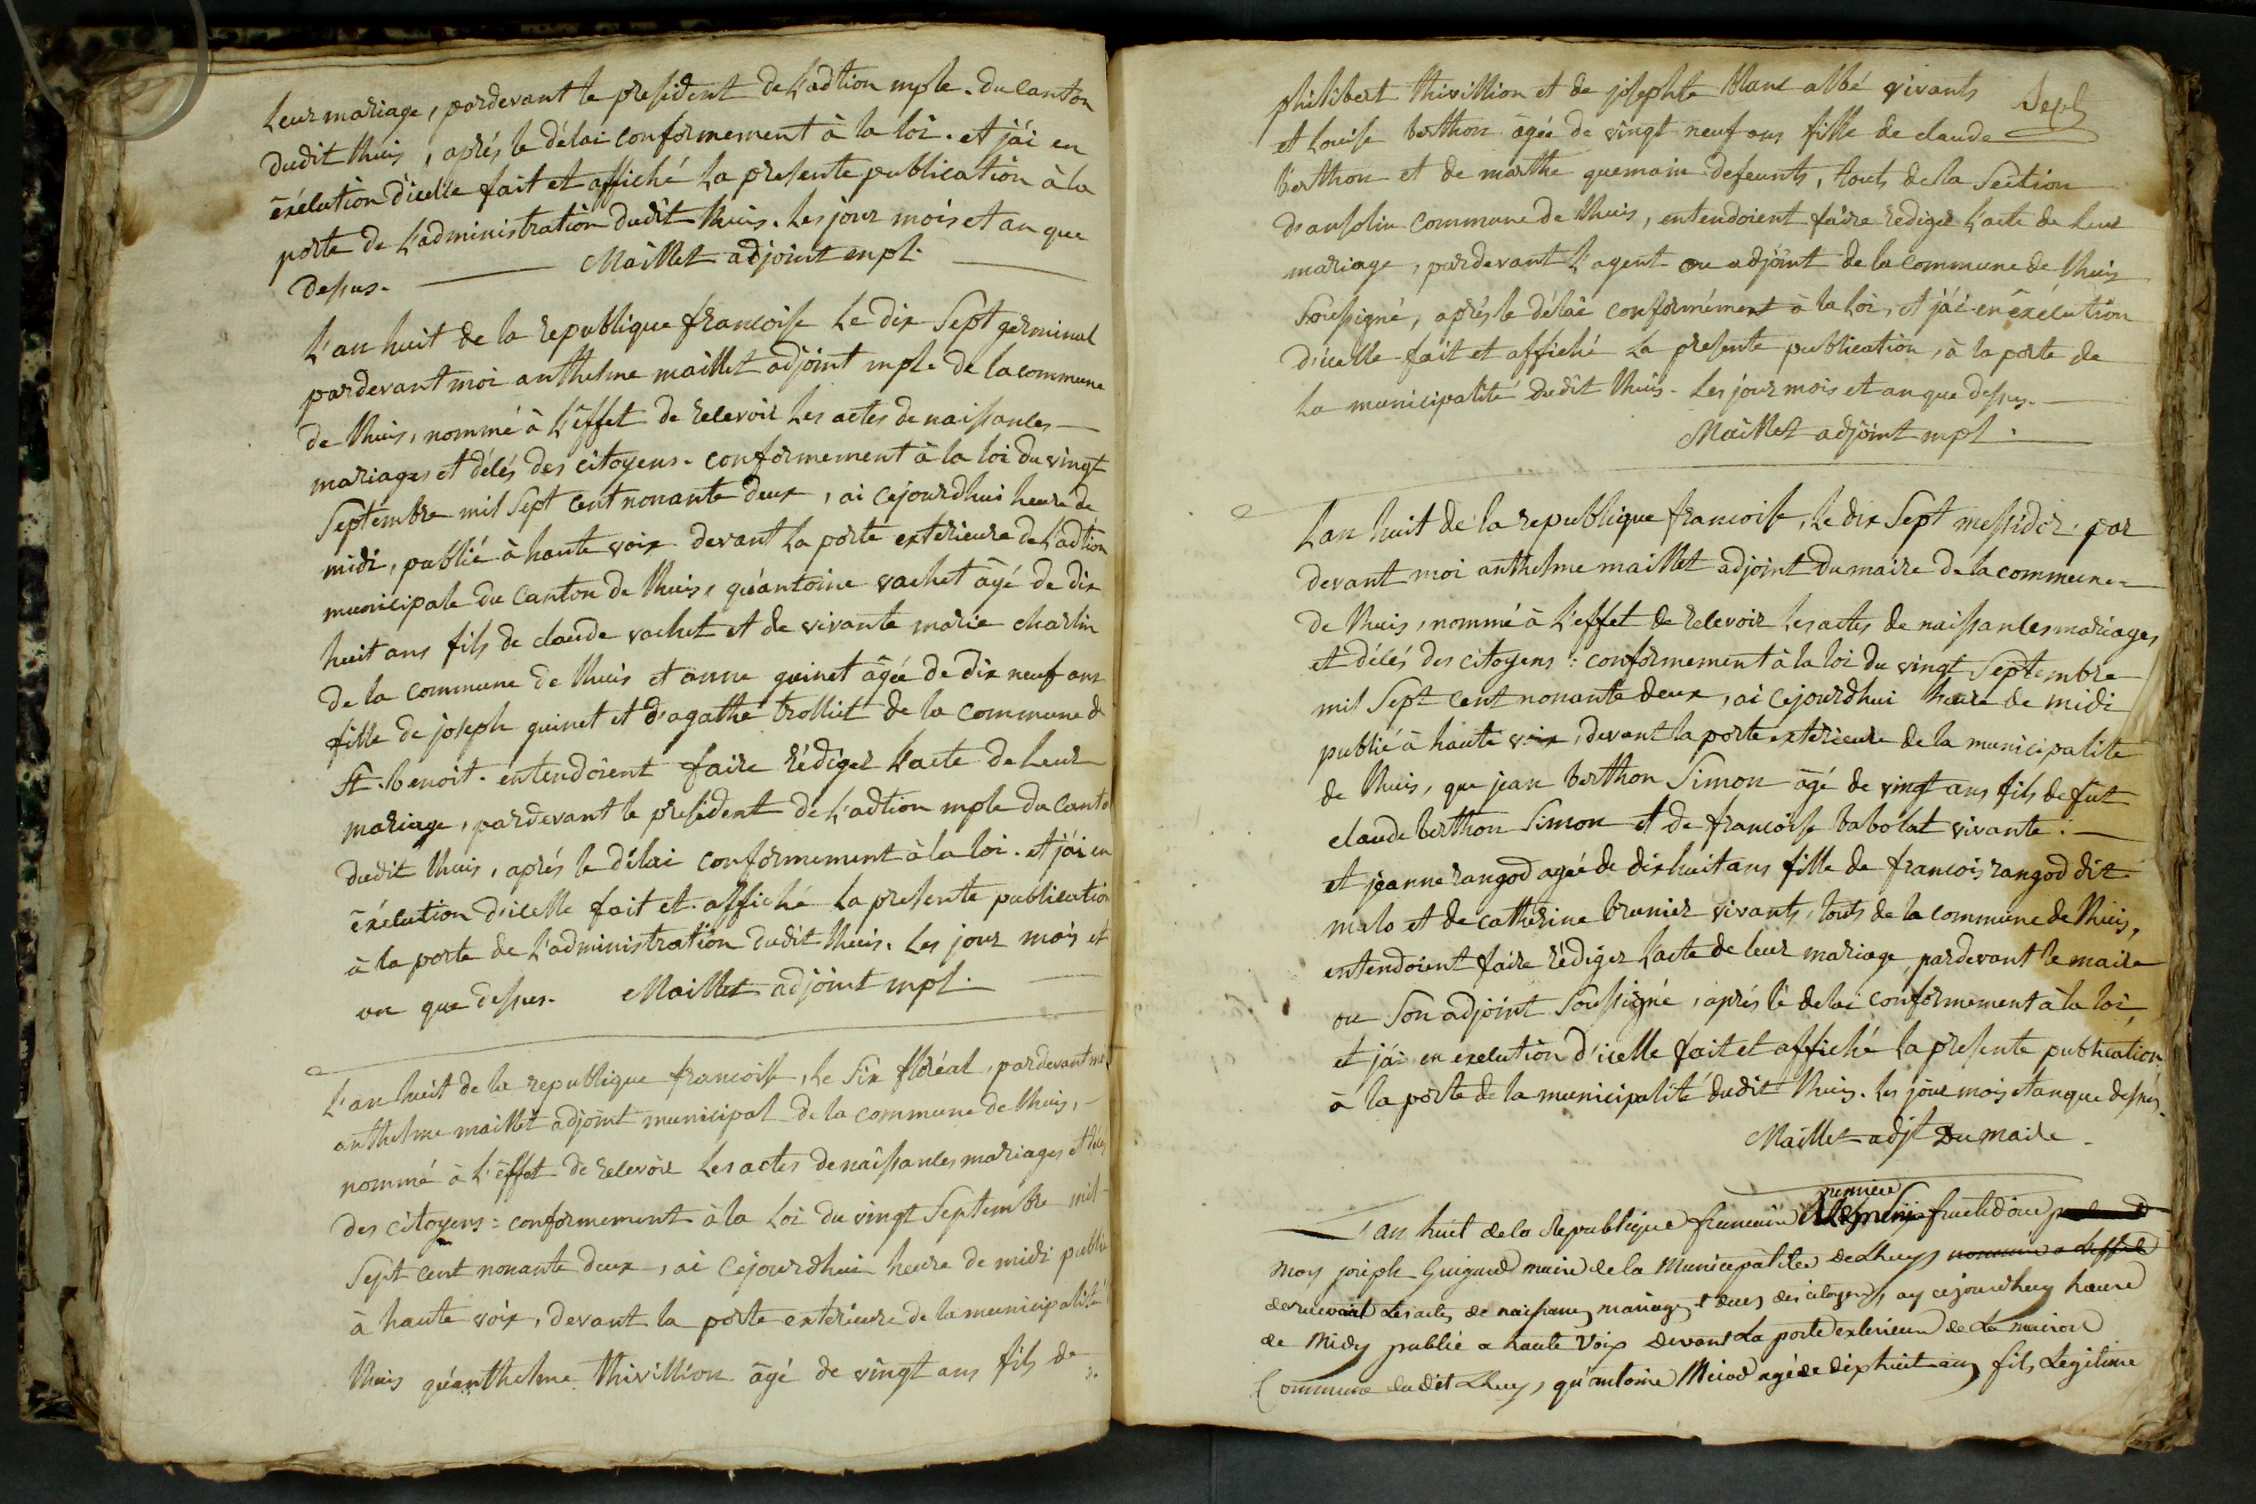 Leur mariage, pardevant le president de L'adtion mple. du Canton
dudit lhuis, aprés le délai conformement à la loi. et j'ai en
éxécution d'icelle fait et affiché La presente publication à la
porte de L'administration dudit lhuis. Les jour mois et an que
dessus. Maillet adjoint mpl.
L'an huit de la republique francoise Le dix Sept germinal
pardevant moi anthelme maillet adjoint mple de la commune
de lhuis, nommé à L'éffet de recevoir Les actes de naissances
mariages et décés des citoyens. conformement à la loi du vingt
Septembre mil Sept cent nonante deux, ai cejourdhui heure de
midi, publié à haute voix devant La porte exterieure de L'adtion
municipale du Canton de lhuis, qu'antoine vachet âgé de dix
huit ans fils de claude vachet et de vivante marie charlin
de la commune de lhuis et anne guinet âgée de dix neuf ans
fille de joseph guinet et d'agathe trolliet de la commune d
St. benoit. entendoient faire rédiger L'acte de Leur
mariage, pardevant le president de L'adtion mple du Canto
dudit lhuis, aprés le délai conformement à la loi. et j'ai en
éxécution d'icelle fait et affiché La presente publication
à la porte de L'administration dudit lhuis. Les jour mois et
an que dessus. Maillet adjoint mpl.
L'an huit de la republique francoise, Le Six floréal, pardevant moi
anthelme maillet adjoint municipal de la commune de lhuis,
nommé à L'éffet de recevoir Les actes de naissances mariages et décés
des citoyens : conformement à la Loi du vingt Septembre mil
Sept cent nonante deux, ai cejourdhui heure de midi publié
à haute voix, devant la porte exterieure de la municipalité
lhuis qu'anthelme thivillion âgé de vingt ans fils de
philibert thivillion et de josephte blanc abbé vivants
Sept
et Louise berthon âgée de vingt neuf ans fille de claude
berthon et de marthe quemain defeunts, touts de la Section
d'ansolin commune de lhuis, entendoient faire rediger L'acte de Leur
mariage, pardevant L'agent ou adjoint de la commune de lhuis
Soussigné, aprés le délai conformément à la loi, et j'ai en éxécution
d'icelle fait et affiché La presente publication, à la porte de
La municipalité dudit lhuis. Les jour mois et an que dessus.
Maillet adjoint mpl.
L'an huit de la republique francoise, Le dix Sept messidor, par
devant moi anthelme maillet adjoint du maire de la commune
de lhuis, nommé à L'effet de recevoir Les actes de naissances mariages
et décés des citoyens : conformement à la loi du vingt Septembre
mil Sept cent nonante deux, ai cejourdhui heure de midi
publié à haute voix, devant la porte exterieure de la municipalite
de lhuis, que jean berthon Simon âgé de vingt ans fils de fut
claude berthon Simon et de francoise babolat vivante.
et jeanne rangod agée de dix huit ans fille de francois rangod dit
malo et de catherine brunier vivants, touts de la commune de lhuis,
entendoient faire rédiger L'acte de leur mariage pardevant le maire
ou Son adjoint Soussigné, aprés le delai conformement à la loi,
et j'ai en execution d'icelle fait et affiché la presente publication
à la porte de la municipalité dudit lhuis. Les jour mois et an que dessus.
Maillet adjt Du maire
premiere
L'an huit de la Republique francaise fructidore
Moy joseph Guigard maire de la Municipalitee de Lhuys nommée a Leffet
de recevoir Les actes de naissance, mariages et deces des citoyens, ay cejourdhuy heure
de Midy publié a haute Voix devant La porte exterieure de La maison
Commune dudit Lhuys, qu'antoine Miod agé de dixhuit ans fils Legitime